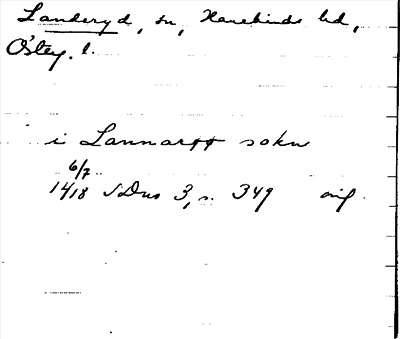 Landeryd, sn, Hanekinds hd,
Östg. l.
i Lannarþþ sokn
6/7
1418 SDns 3, s. 349 orig.